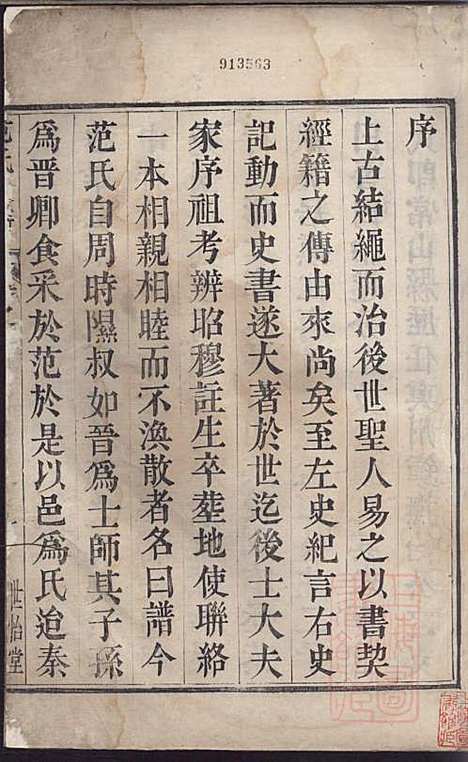 913563
序
上古結繩而治後世聖人易之以書契
經籍之傳由來尚矣至左史紀言右史
記動而史書遂大著於世迄後士大夫
家序祖考辨昭穆註生卒塟地使聯絡
一本相親相睦而不渙散者名曰譜今
范氏自周時隰叔如晉爲士師其子孫
爲晉卿食采於范於是以邑爲氏迨秦
世怡堂